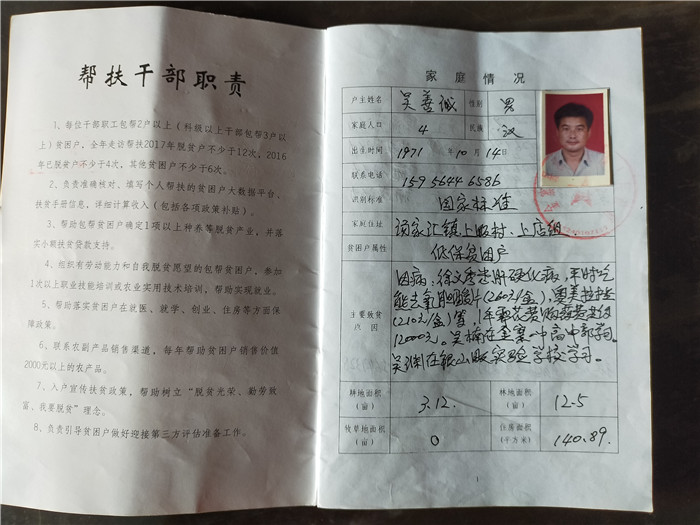 帮扶干部职责
1、每位干部职工包帮2户以上（科级以上干部包帮3户以
上）贫困户，全年走访帮扶2017年脱贫户不少于12次，2016
年已脱贫户不少于4次，其他贫困户不少于6次。
2、负责准确核对、填写个人帮扶的贫困户大数据平台、
扶贫手册信息，详细计算收入（包括各项政策补贴）。
3、帮助包帮贫困户确定1项以上种养等脱贫产业，并落
实小额扶贫贷款支持。
4、组织有劳动能力和自我脱贫愿望的包帮贫困户，参加
1次以上职业技能培训或农业实用技术培训，帮助实现就业。
5、帮助落实贫困户在就医、就学、创业、住房等方面保
障政策。
6、联系农副产品销售渠道，每年帮助贫困户销售价值
2000元以上的农产品。
7、入户宣传扶贫政策，帮助树立“脱贫光荣、勤劳致
富、我要脱贫”理念。
8、负责引导贫困户做好迎接第三方评估准备工作。
家庭情况
户主姓名 吴善诚 性别 男
家庭人口 4 民族 汉
出生时间 1971年10月14日
联系电话 159 5644 6586
识别标准 国家标准
家庭住址 汤家汇镇上畈村、上店组
贫困户属性 低保贫困户
因病：徐文秀患肝硬化病，平时吃
能去氧胆酸片(260元/盒)，
主要致贫
(210元/盒)等，1年需花
户因
12000元。吴楠在金寨一中高中部学习。
吴渊在银山畈实验学校学习。
耕地面积（亩） 3.12. 林地面积（亩） 12.5
牧草地面积（亩） 0 住房面积（平方米） 140.89.
1